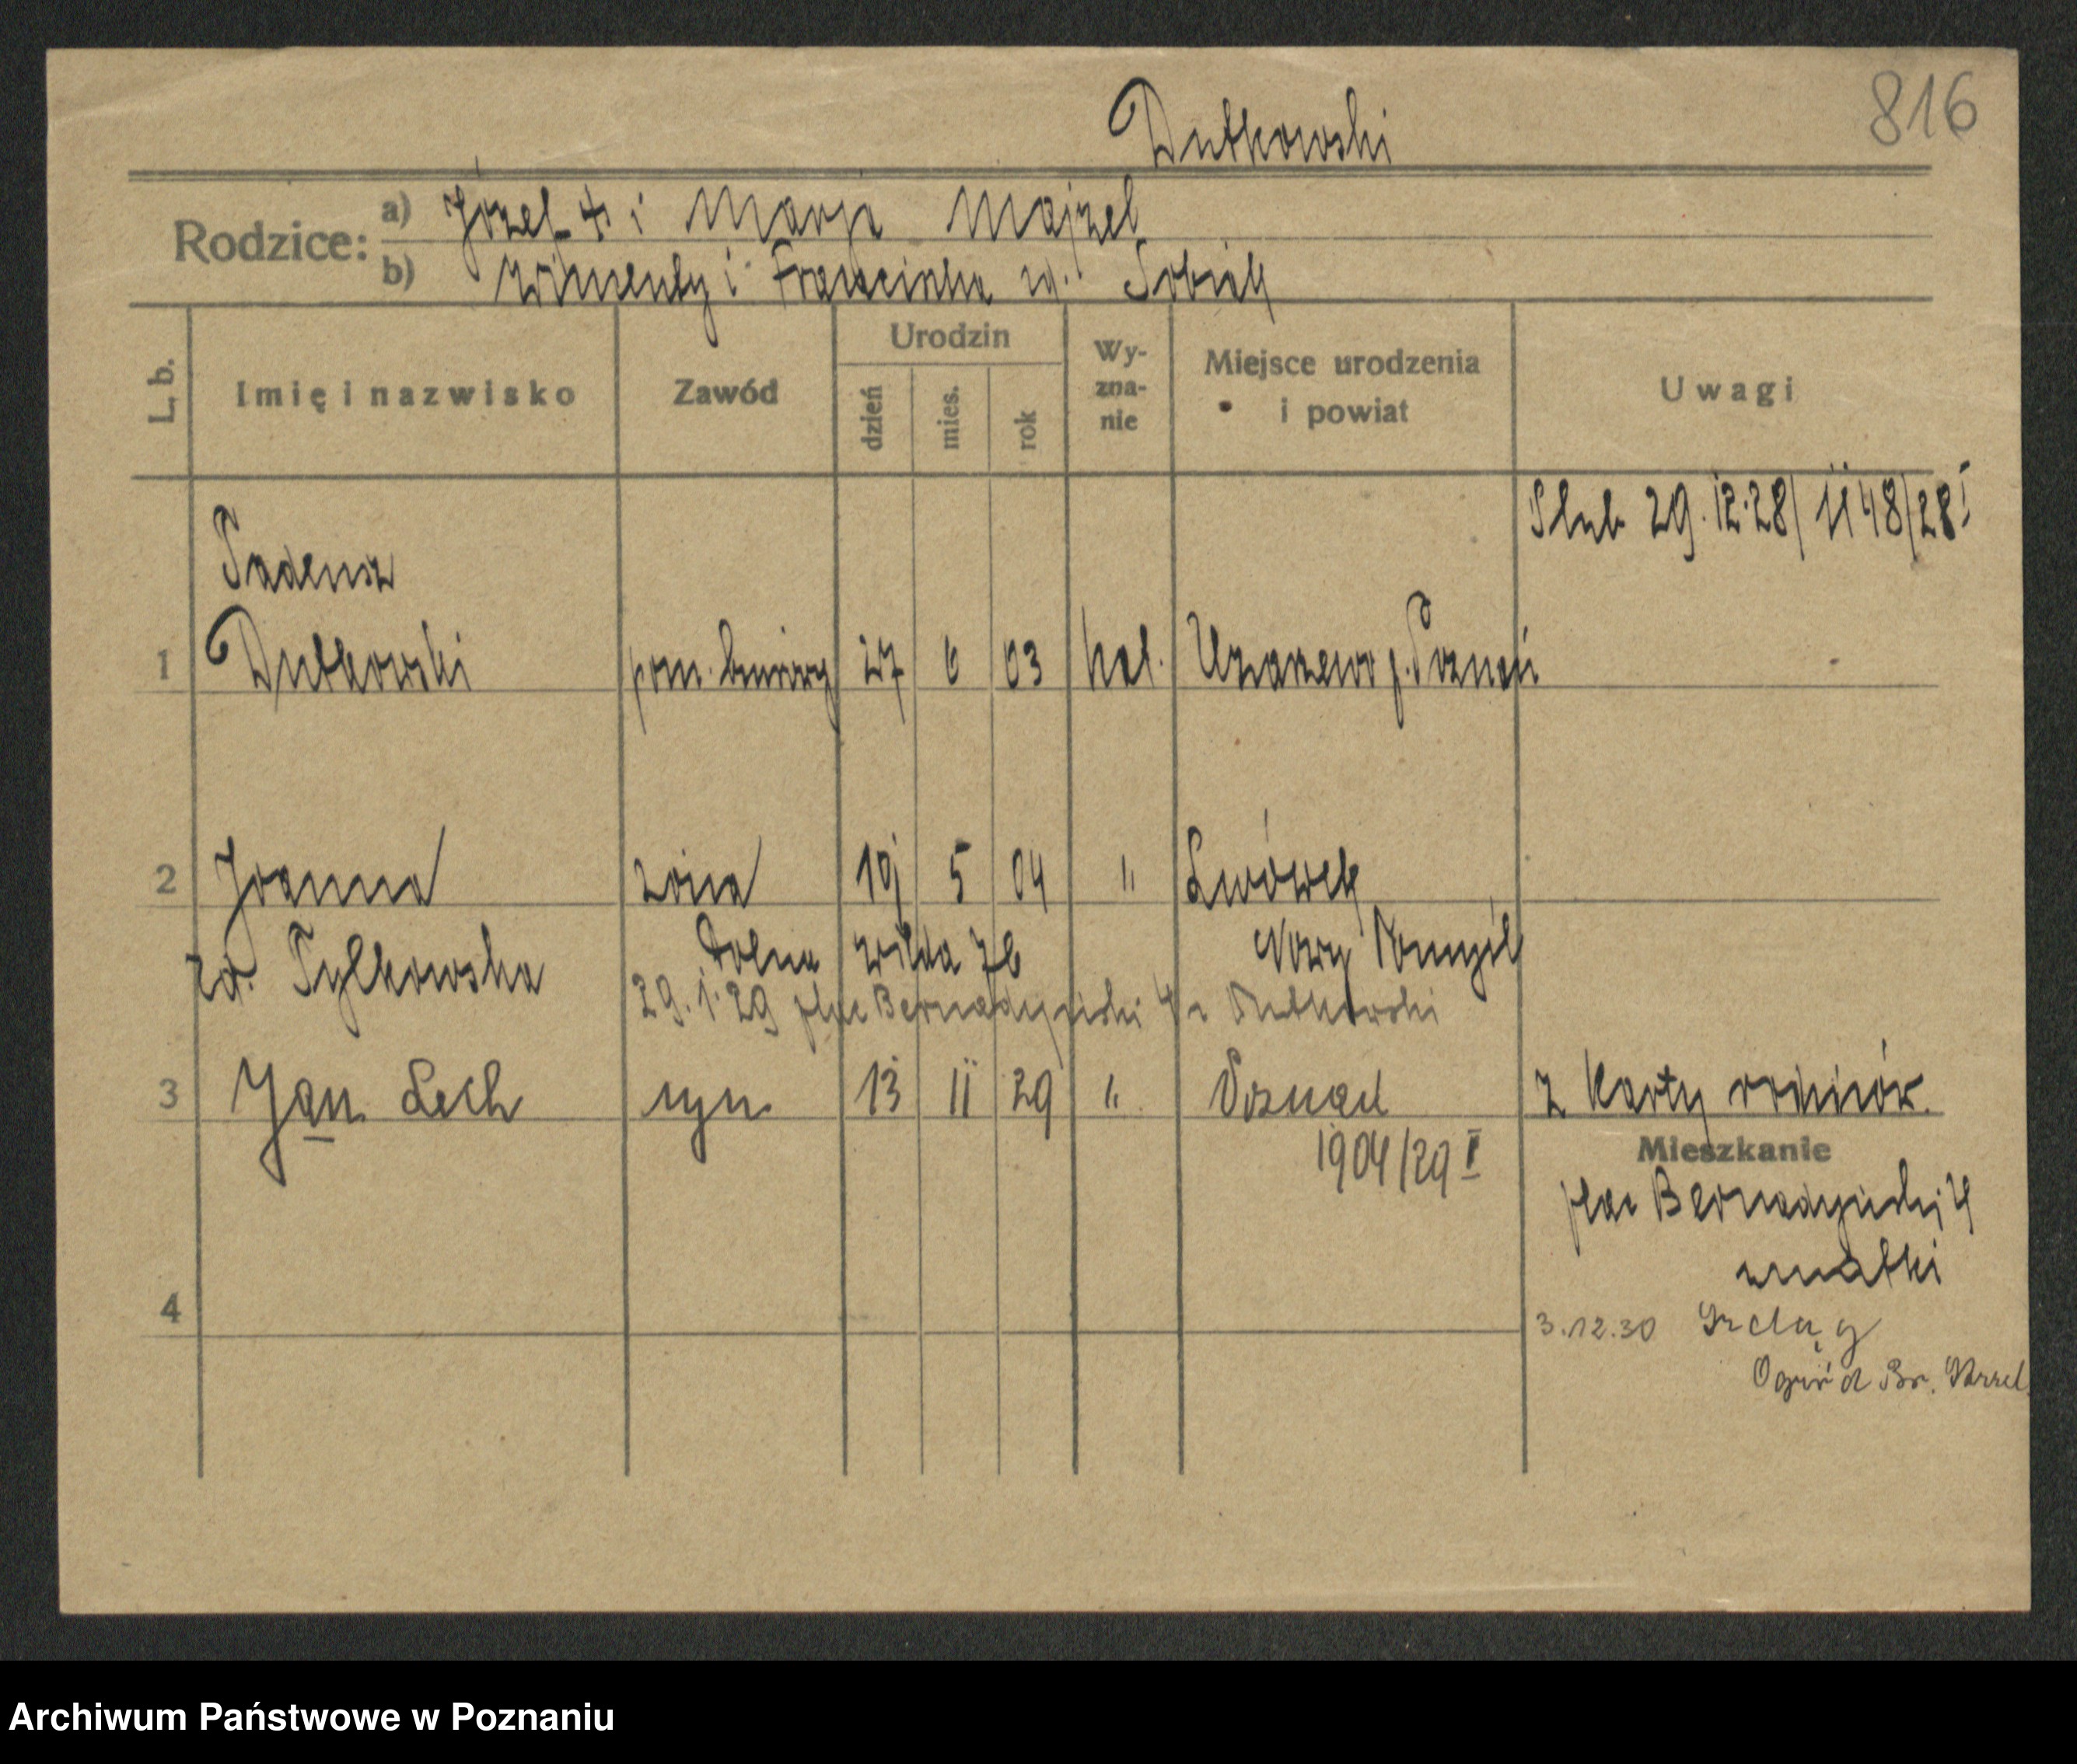 816
Dutkowski
Rodzice:
a) Józef i Marja Majzel
b) Wincenty i Franciszka zd. Sobiak
L. b.
Imię i nazwisko
Zawód
Urodzin
dzień
mies.
rok
Wy-
zna-
nie
Miejsce urodzenia
i powiat
Uwagi
Slub 29.12.28/ 1148/28 I
Tadeusz
1 Dutkowski pom. biurowy 27 6 03 kat. Uzarzewo p. Poznań
2 Joanna żona 19 5 04 " Lwówek
zd. Tylkowska Dolna Wilda 76 Nowy Tomyśl
29.1.29 plac Bernadyński 4 Dutkowski
3 Jan Lech syn 13 11 29 " Poznań Z Karty rodziców
1904/29 I
Mieszkanie
plac Bernadyński 4
u matki
4
3.12.30
Ogród Br.
Archiwum Państwowe w Poznaniu